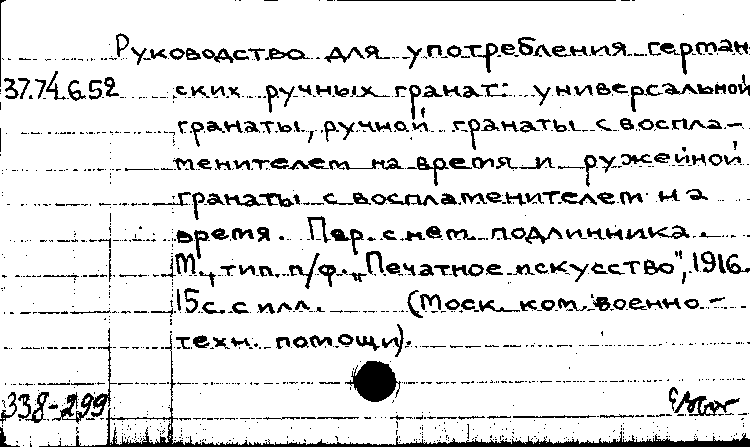 Руководство для употребления герман
37.74.6.52 ских ручных гранат: универсальной
гранаты, ручной гранаты с воспла-
менителем на время и ружейной
гранаты с воспламенителем на
время. Пер. с нем. подлинника.
М., тип. п/ф. „Печатное искусство", 1916.
15 с. с илл. (Моск. ком. военно-
техн. помощи).
338-299